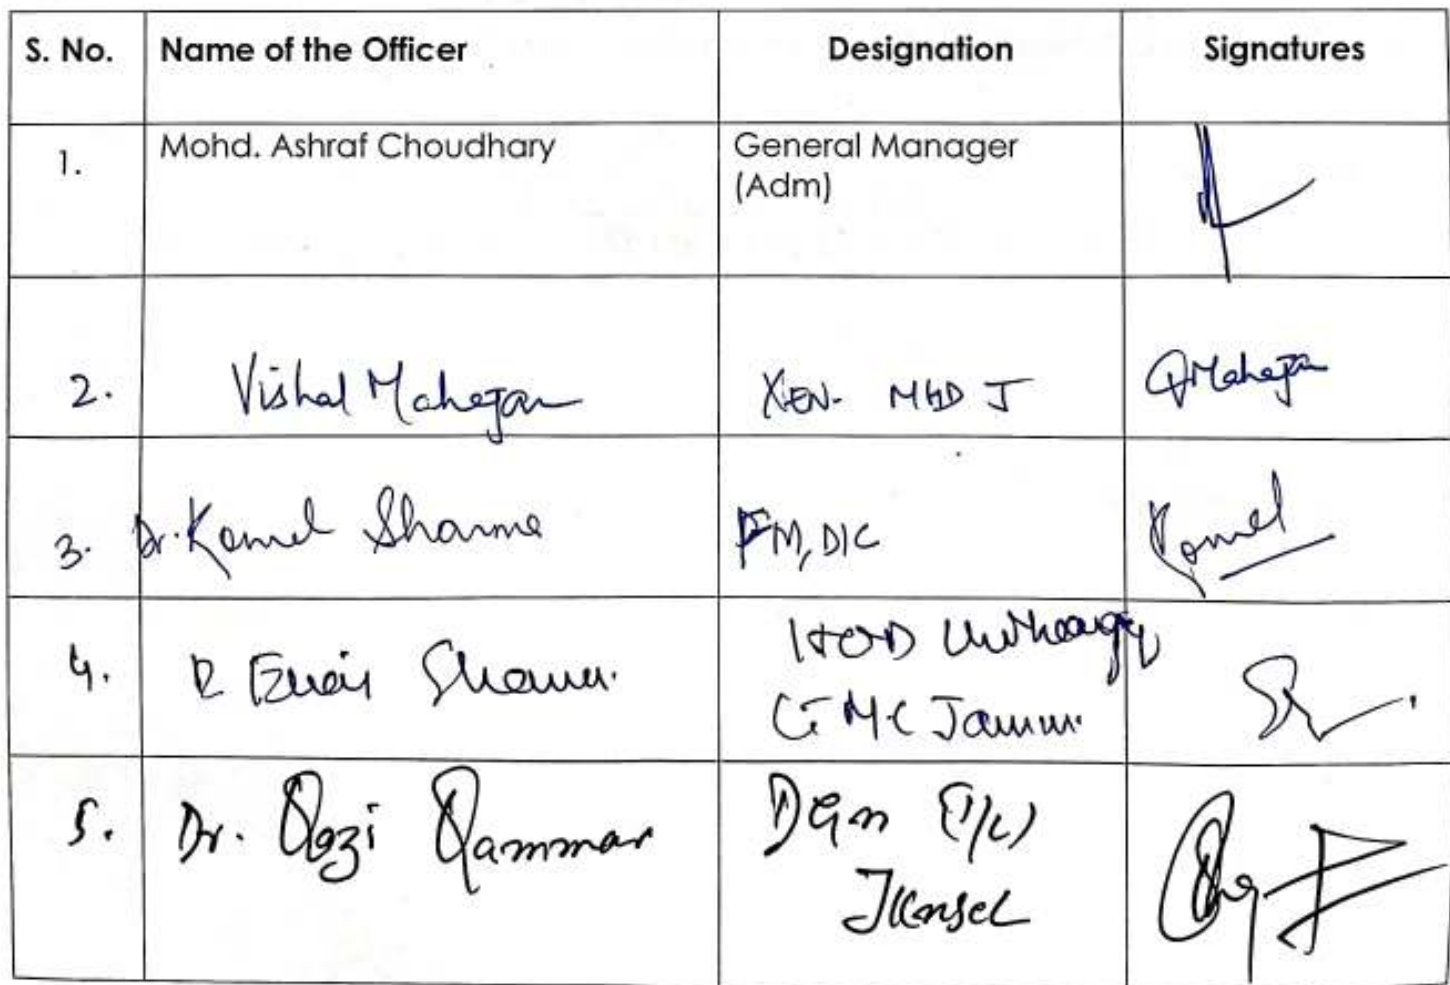 S. No. Name of the Officer Designation Signatures
1. Mohd. Ashraf Choudhary General Manager
(Adm)
2. Vishal Mahajan XEN. MHD J Mahajan
3. Dr. Komal Sharma FM, DIC Komal
4. Sharma HOD
GMC Jammu
5. Dr. Qazi Qammar DGM (I/C)
JKMSCL